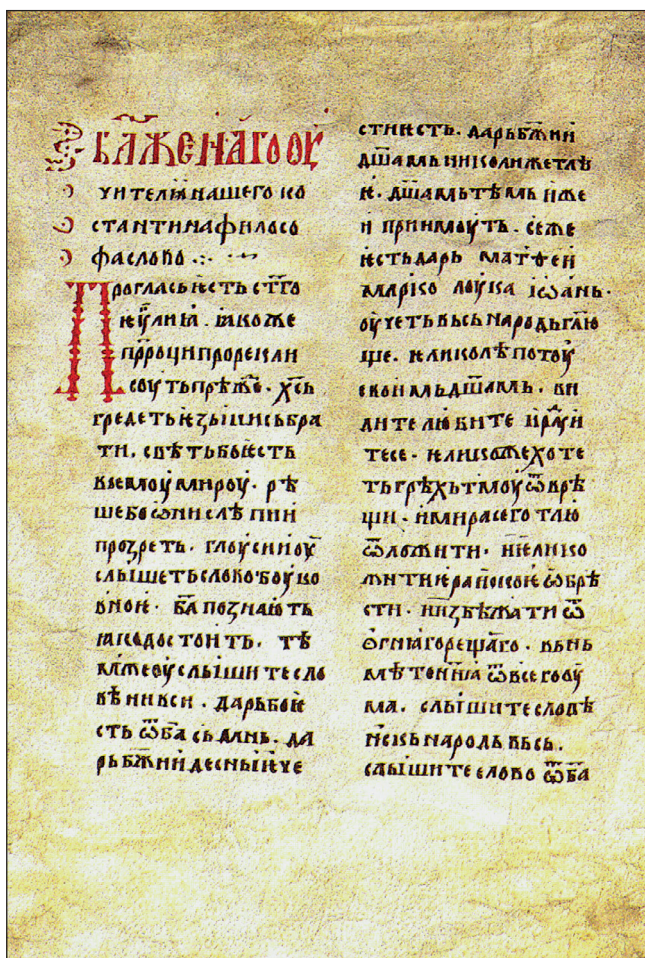 БЛ҃ЖЕНАГО ОУ
ЧИТЕЛꙖ НАШЕГО КО
СТАНТИНА ФИЛОСО
ФА СЛОВО
ПРОГЛАСЬ ѤСТЬ СТ҃ГО
ѤУ҃ЛИꙖ · ꙖКОЖЕ
ПРР҃ОЦИ ПРОРЕКЛИ
СОУТЬ ПРѢЖЕ · ХС҃Ь
ГРЕДЕТЬ ѤЗЫКЫ СЬБРА
ТИ · СВѢТЬ БО ѤСТЬ
ВЬСЕМОУ МИРОУ · РѢ
ШЕ БО ѠНИ СЛѢПИИ
ПРОЗРЕТЬ · ГЛОУСИИ ОУ
СЛЫШЕТЬ СЛОВО БОУКО
ВНОѤ · БА҃ ПОЗНАЮТЬ
ꙖКО ДОСТОИТЬ · ТѢ
МЖЕ ОУСЛЫШИТЕ СЛО
ВѢНИ ВСИ · ДАРЬ БО Ѥ
СТЬ Ѿ БА҃ СЬ ДАНЬ · ДА
РЬ БЖ҃ИИ ДЕСНЫѤ ЧЕ
СТИ ѤСТЬ · ДАРЬ БЖ҃ИИ
ДШ҃АМЬ НИКОЛИЖЕ ТЛѢ
Ѥ · ДШ҃АМЬ ТѢМЬ ИЖЕ
И ПРИИМОУТЬ · СЕ ЖЕ
ѤСТЬ ДАРЬ МАТѲЕИ
МАРКО ЛОУКА ІѠАНЬ ·
ОУЧЕТЬ ВЬСЬ НАРОДЬ ГЛ҃Ю
ЩЕ · ѤЛИКО ЛѢПОТОУ
СВОИМЬ ДШ҃АМЬ · ВИ
ДИТЕ ЛЮБИТЕ И РАДУИ
ТЕ СЕ · ѤЛИКО ЖЕ ХОТЕ
ТЬ ГРѢХЬ ТМОУ ѾВРѢ
ЩИ · И МИРА СЕГО ТЛЮ
ѾЛОЖИТИ · И ѤЛИКО
ЖИТИѤ РАИСКОѤ ѠБРѢ
СТИ · И ИЗБѢЖАТИ Ѿ
ОГНꙖ ГОРЕЩАГО · ВЬНЬ
МѢТЕ НИНꙖ Ѿ ВСЕГО ОУ
МА · СЛЫШИТЕ СЛОВѢ
НЬСКЬ НАРОДЬ ВЬСЬ ·
СЛЫШИТЕ СЛОВО Ѿ БА҃